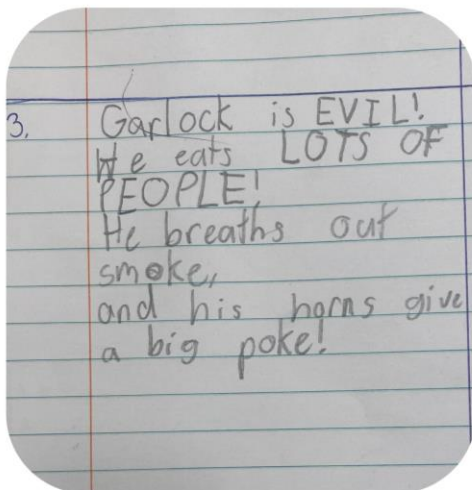 3. Garlock is EVIL!
He eats LOTS OF
PEOPLE!
He breaths out
smoke,
and his horns give
a big poke!